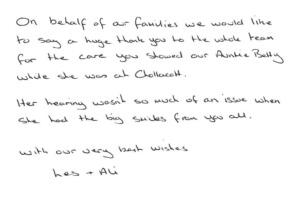 On behalf of our families we would like
to say a huge thank you to the whole team
for the care you showed our Auntie Betty
while she was at Chollacott.
Her hearing wasn't so much of an issue when
she had the big smiles from you all.
with our very best wishes
Les + Ali